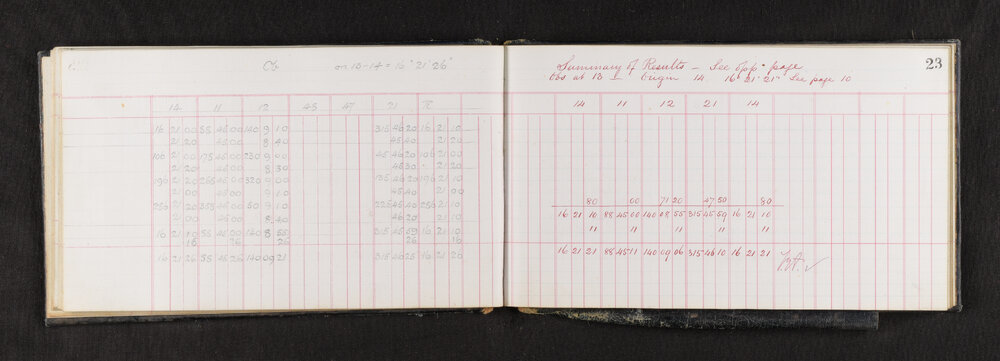 on 13-14 = 16° 21' 26"
14 11 12 48 47 21
16 21 00 85 45 00 140 9 10 315 46 20 16 21 10
21 20 45 00 8 40 45 40 21 20
106 21 00 175 45 00 230 9 00 45 46 20 106 21 00
21 20 45 00 8 30 45 30 21 20
196 21 20 265 45 00 320 9 00 135 46 20 196 21 10
21 00 45 00 9 10 45 40 21 00
21 20 355 45 00 50 9 10 225 45 40 21 10
21 00 45 00 8 40 46 20 21 10
16 21 10 45 00 140 8 55 315 45 59 16 21 10
16 26 26 26 16
16 21 26 45 26 140 09 21 315 46 25 16 21 26
Summary of Results - See opp. page 23
Obs at 13 - Origin 14 16° 21' 21" See page 10
14 11 12 21 14
80 00 71 20 47 50 80
16 21 10 88 45 00 140 08 55 315 45 59 16 21 10
11 11 11 11 11
16 21 21 88 45 11 140 09 06 315 46 10 16 21 21